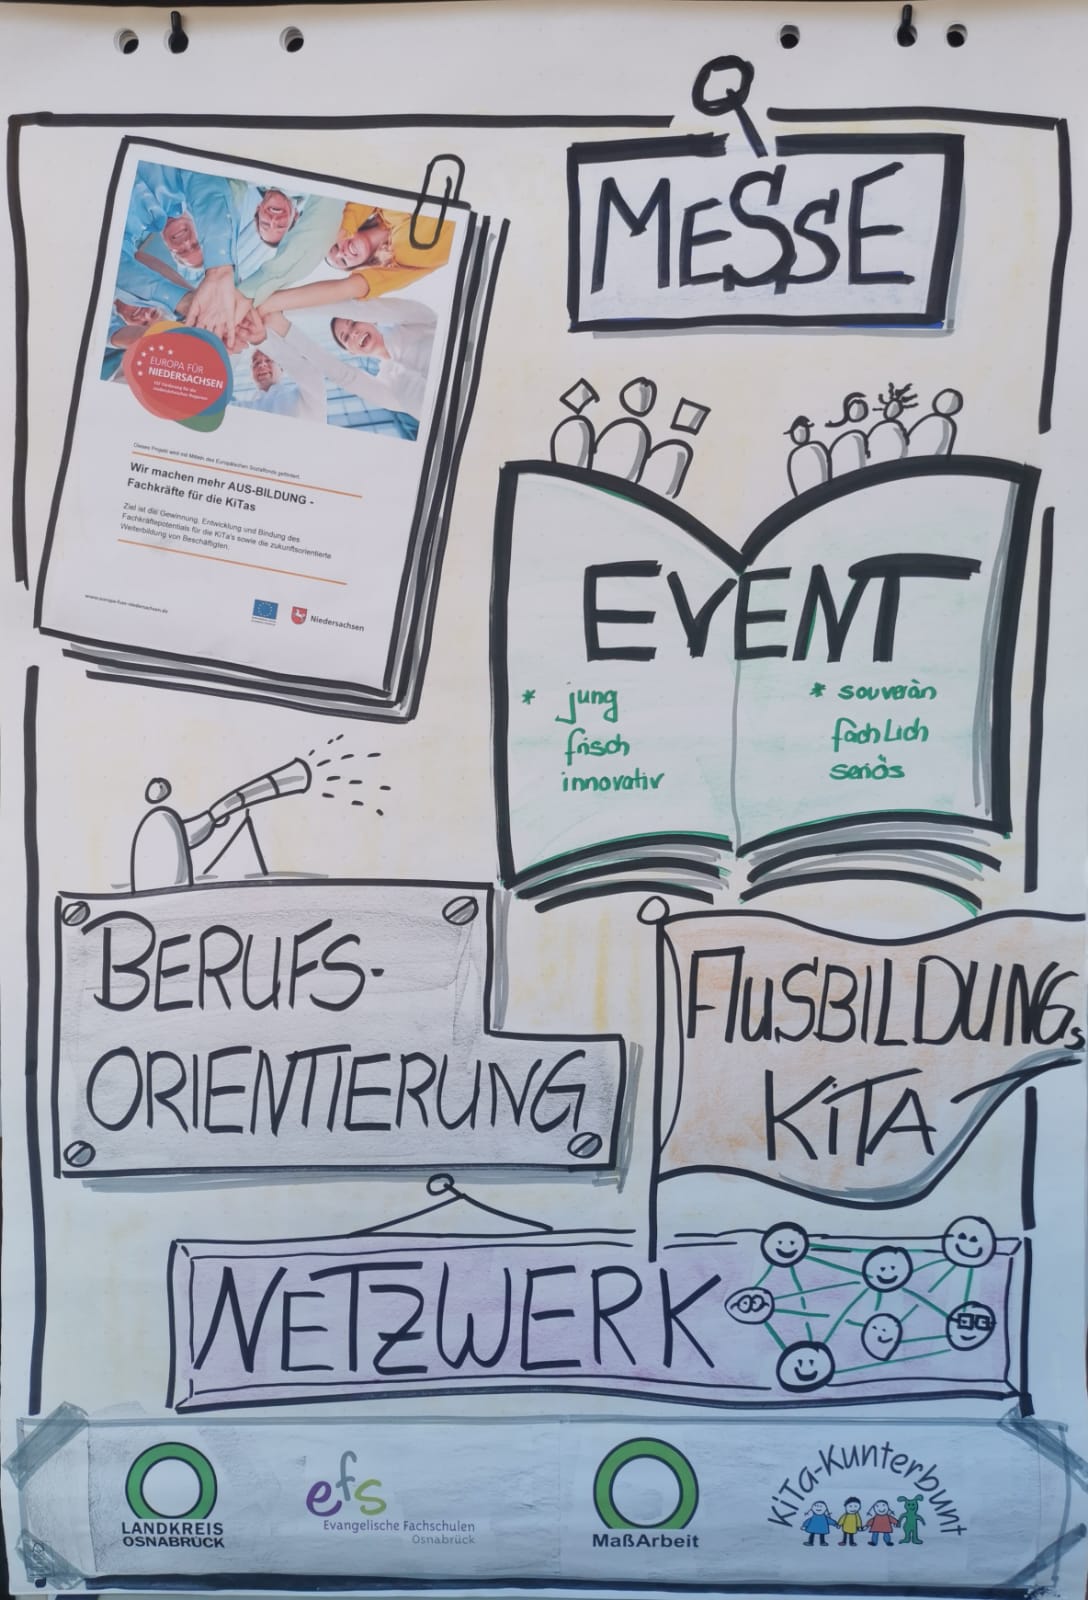 MESSE
EUROPA FÜR
NIEDERSACHSEN
Dieses Projekt wird mit Mitteln des Europäischen Sozialfonds gefördert.
Wir machen mehr AUS-BILDUNG -
Fachkräfte für die KiTas
Ziel ist die Gewinnung, Entwicklung und Bindung des
Fachkräftepotentials für die KiTa's sowie die zukunftsorientierte
Weiterbildung von Beschäftigten.
www.europa-fuer-niedersachsen.de
Niedersachsen
EVENT
* jung
frisch
innovativ
* souverän
fachlich
seriös
BERUFS-
ORIENTIERUNG
AUSBILDUNGs
KITA
NETZWERK
LANDKREIS
OSNABRÜCK
efs
Evangelische Fachschulen
Osnabrück
MaßArbeit
KiTa-Kunterbunt